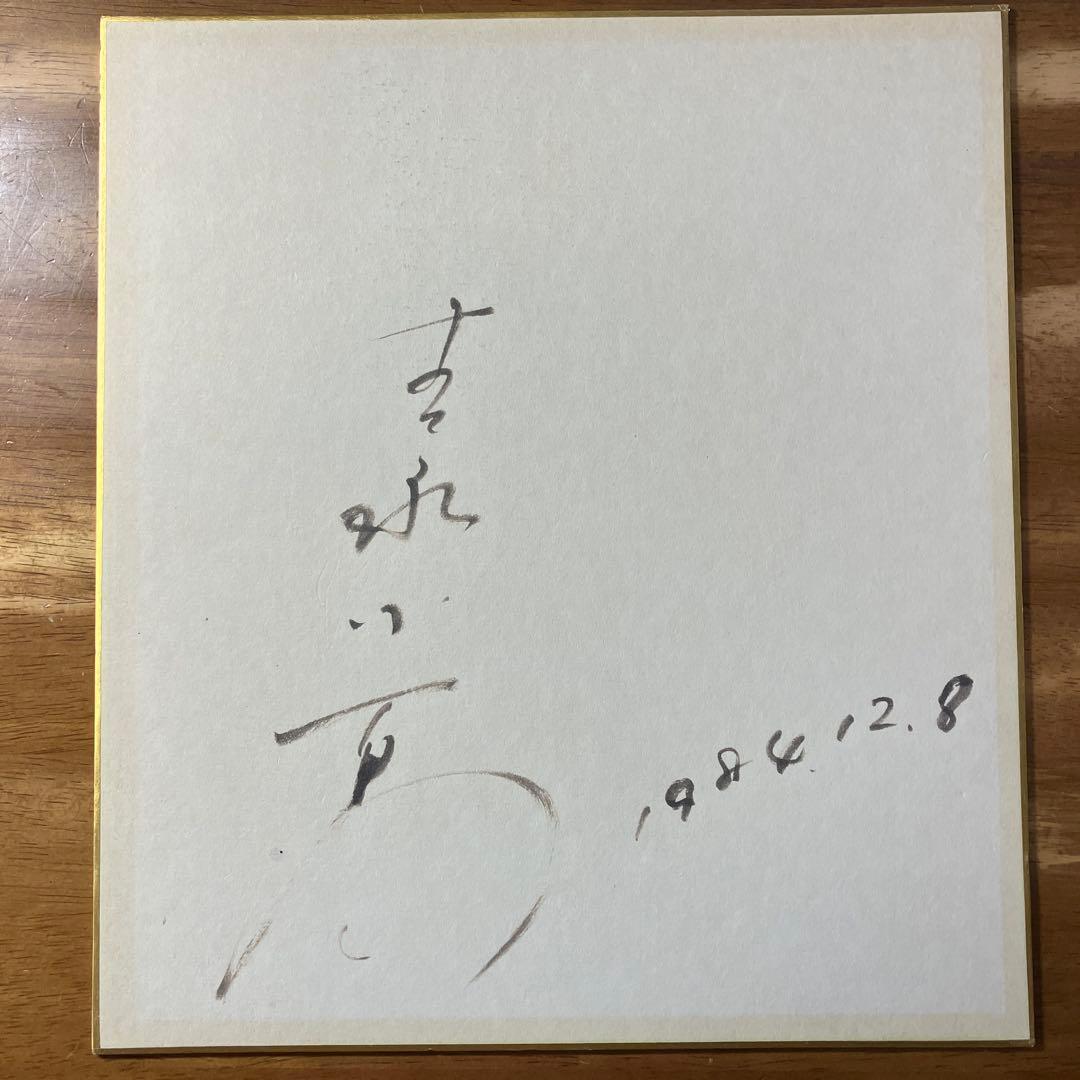 吉永小百合
1984.12.8